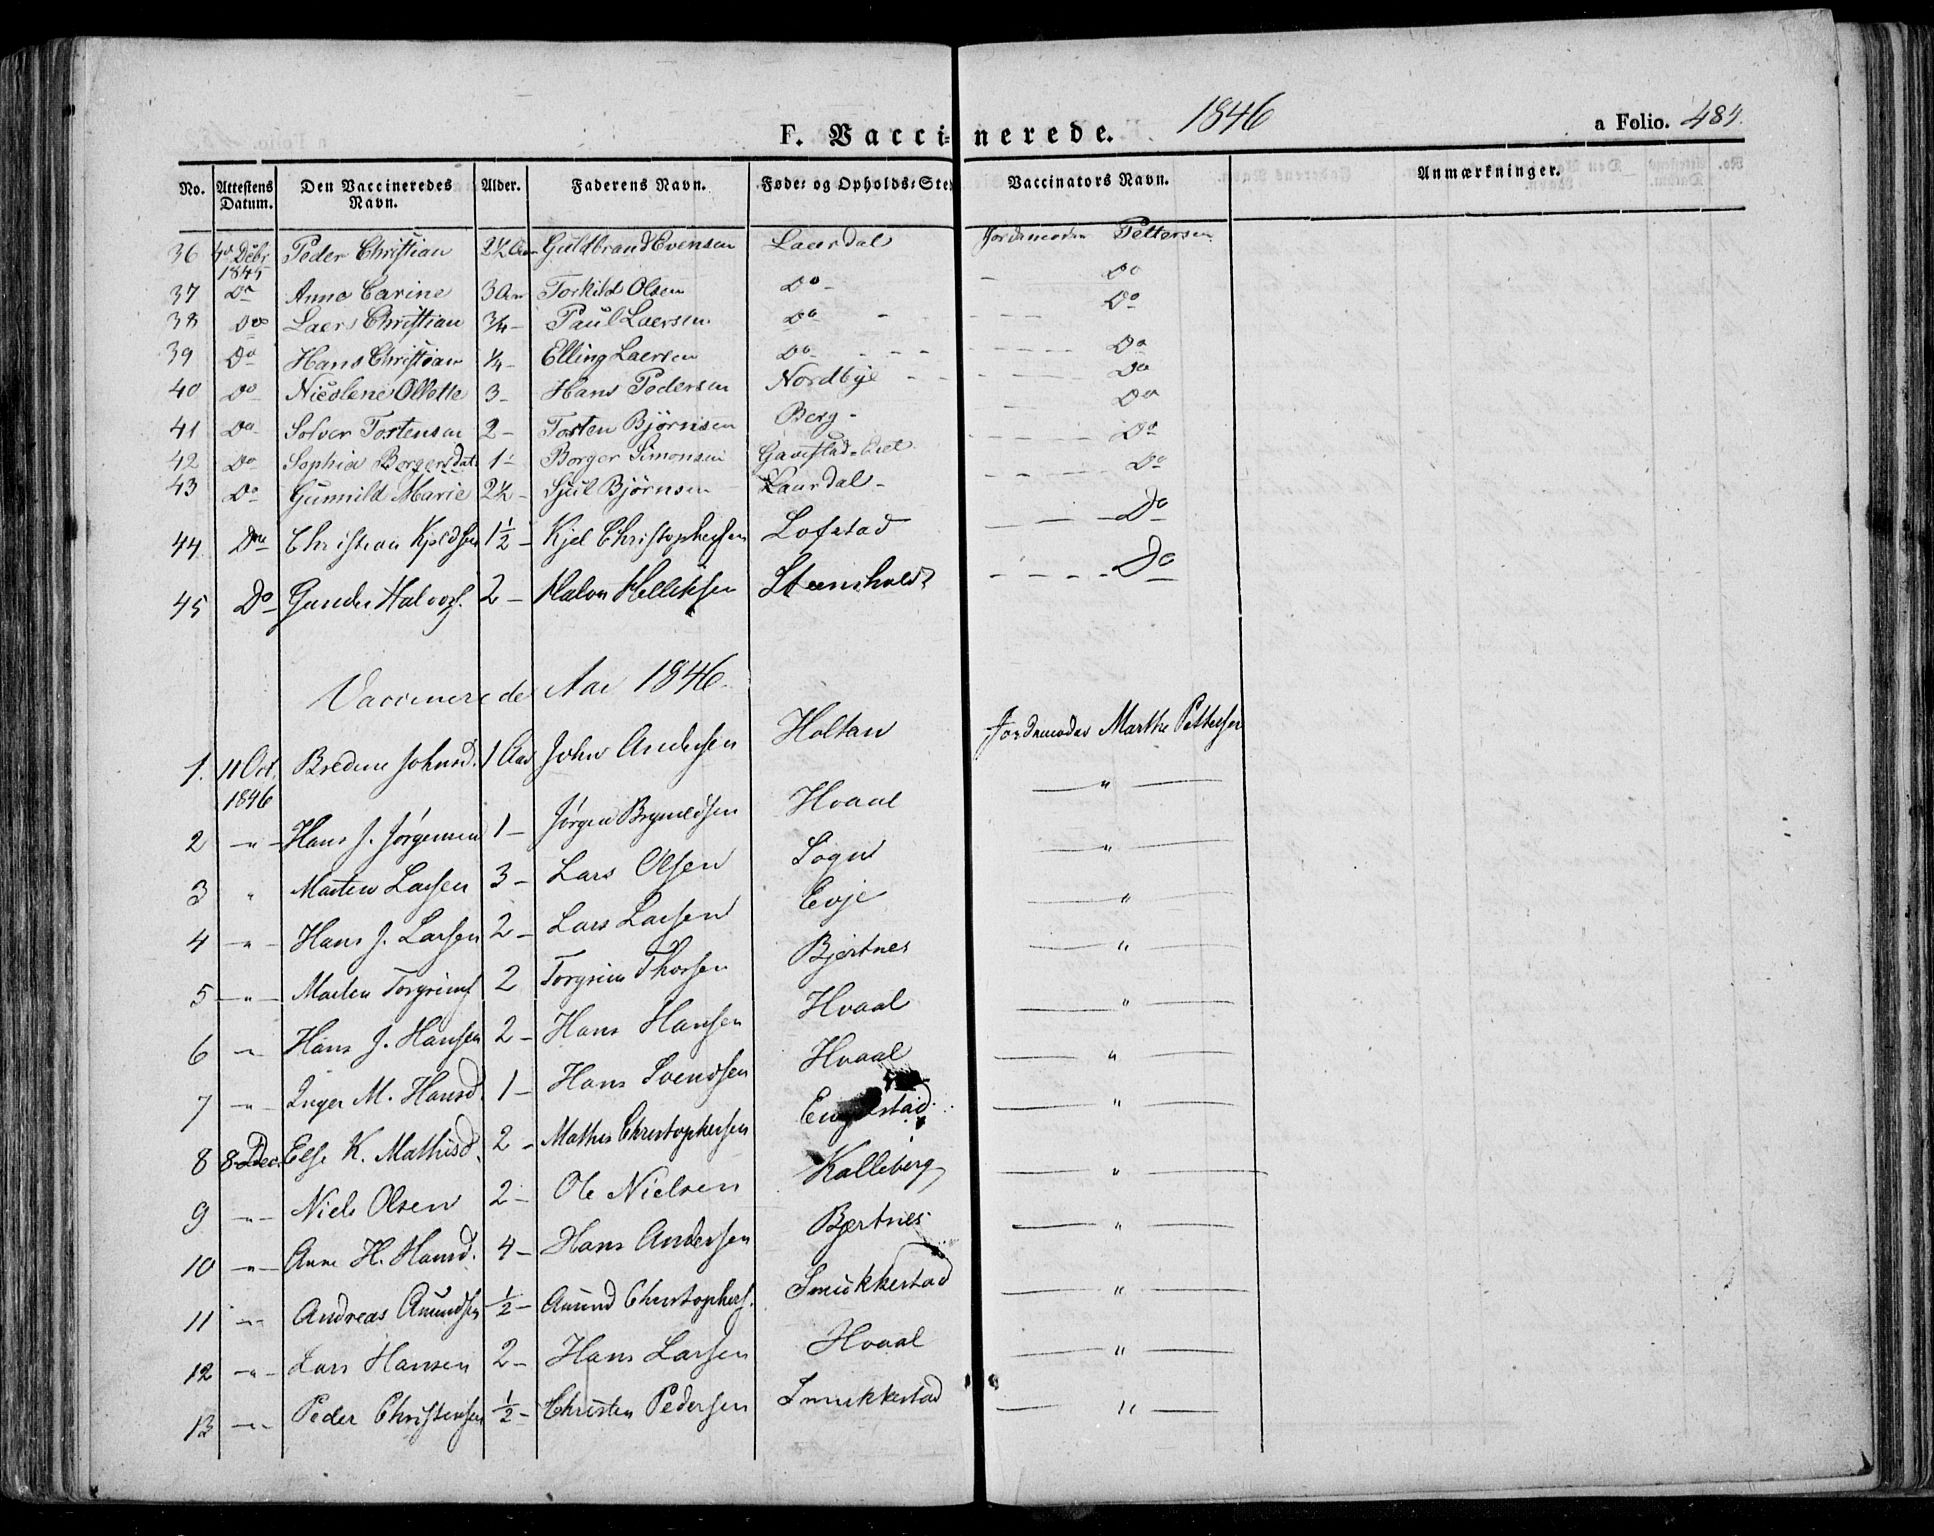 F. Vaccinerede. 1846 a Folio. 484.
No. Attestens Datum. Den Vaccineredes Navn. Alder. Faderens Navn. Føde- og Opholds-Ste Vaccinators Navn. Anmærkninger.
36 Debr 1845 Peder Christian 2½ Aar Guldbrand Evensen Laurdal Jordemoder Pettersen
37 Do Anne Carine 3 Aar Torkild Olsen Do - Do
38 Do Laers Christian 3/4 - Paul Laersen Do - Do
39 Do Hans Christian 1/4 - Elling Laersen Do - Do
40 Do Nicolene Olette 3 - Hans Pedersen Nordbye Do
41 Do Solver Tostensen 2 - Tosten Bjørnsen Berg - Do
42 Do Sophia Borgersdat 1 - Borger Simonsen Do
43 Do Gunnild Marie 2½ - Sjul Bjørnsen Laurdal - Do
44 Do Christian Kjeldsen 1½ - Kjel Christophersen Lofstad Do
45 Do Gunder Halvors. 2 - Halvor Helleksen Steensholdt Do
Vaccinerede Aar 1846.
1. 11 Oct. 1846 Bredine Johnsd. 1 Aar John Andersen Holtan Jordemoder Marthe Pettersen
2 -"- Hans J. Jørgensen 1 - Jørgen Brynildsen Hvaal "
3 " Marten Larsen 3 - Lars Olsen Sogn "
4 -"- Hans J. Larsen 2 - Lars Larsen Evje "
5 -"- Maren Torgrims 2 Torgrim Thorsen Bjertnes "
6 -"- Hans J. Hansen 2 - Hans Hansen Hvaal "
7 -"- Inger M. Hansd. 1 - Hans Svendsen Hvaal "
8 8 Dec. Else K. Mathisd. 2 - Mathis Christophersen Engelstad "
9 -"- Niels Olsen 2 - Ole Nielsen Kalleberg "
10 -"- Anne H. Hansd. 4 - Hans Andersen Bjertnes "
11 -"- Andreas Amundsen ½ - Amund Christophers. Smukkestad "
12 -"- Lars Hansen 2 - Hans Larsen Hvaal "
13 -"- Peder Christensen ½ - Christen Pedersen Smukkestad "